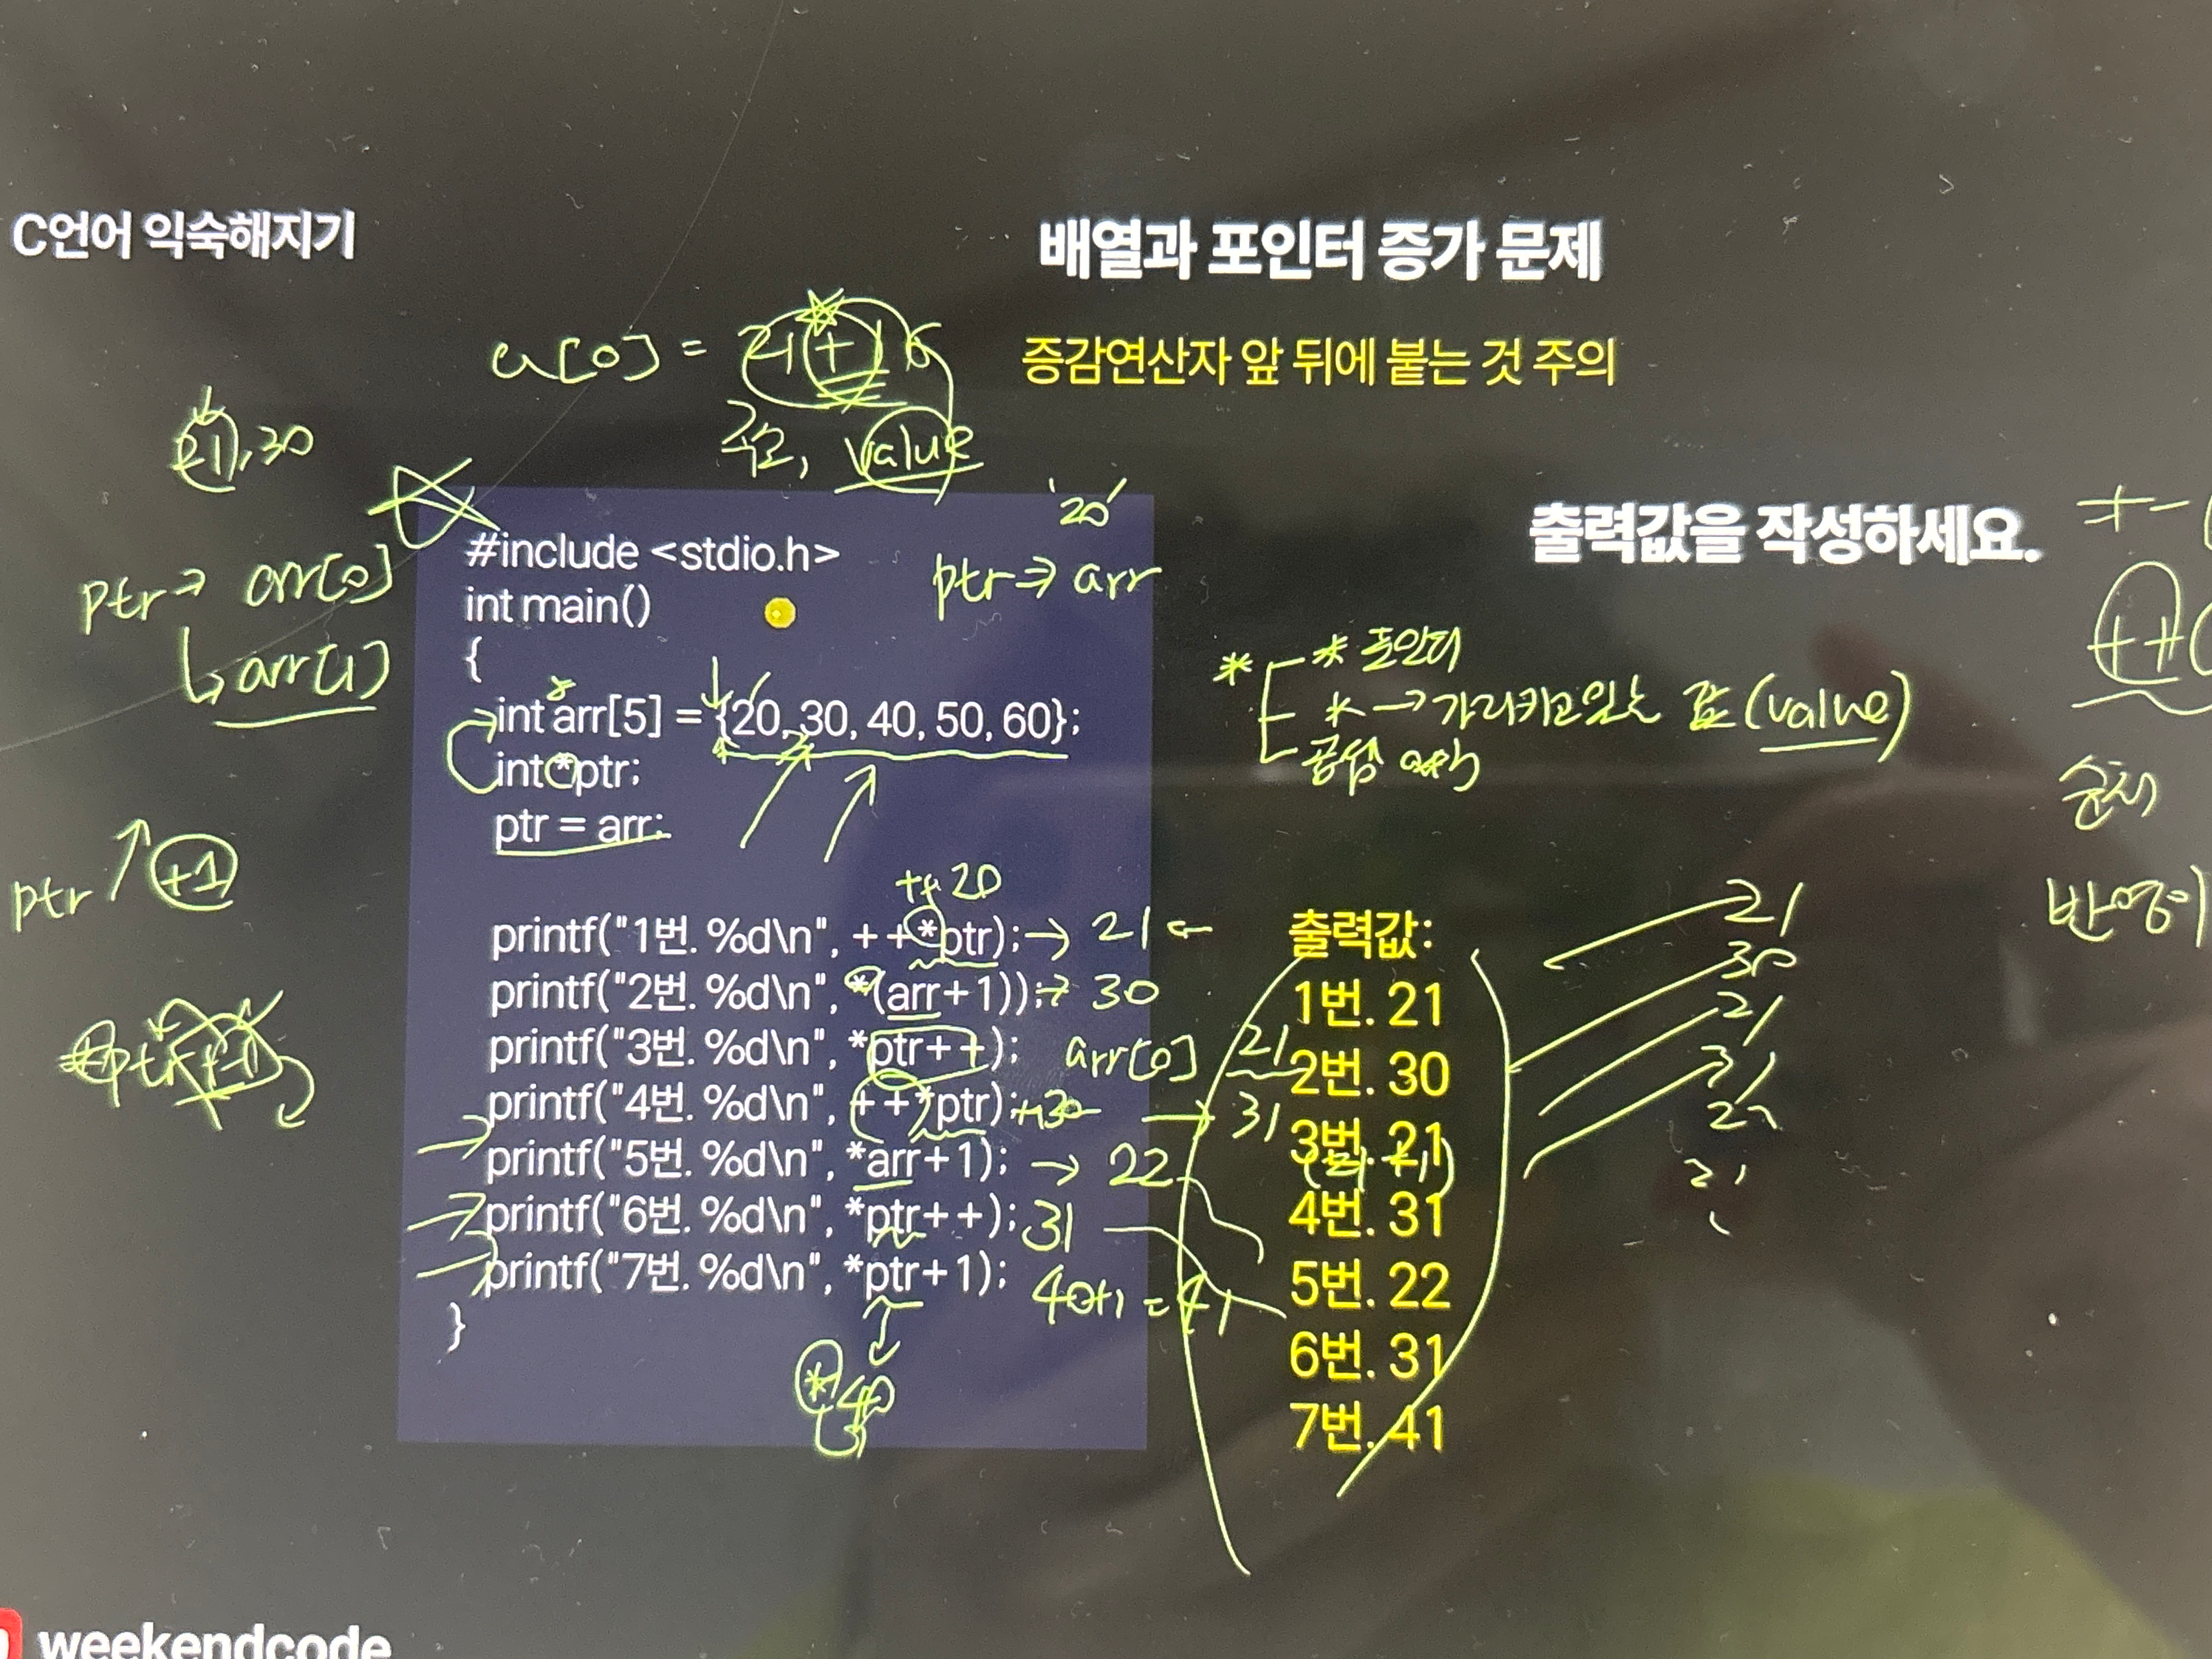 C언어 익숙해지기
배열과 포인터 증가 문제
증감연산자 앞 뒤에 붙는 것 주의
a[0] =
주소, value
21, 30
'20'
출력값을 작성하세요.
+-
++
ptr → arr[0]
↳ arr[1]
ptr → arr
#include <stdio.h>
int main()
{
int arr[5] = {20, 30, 40, 50, 60};
int *ptr;
ptr = arr;
* * 포인터
* → 가리키고있는 값 (value)
ptr ↑ +1
++ 20
printf("1번. %d\n", ++*ptr); → 21 ←
printf("2번. %d\n", *(arr+1)); → 30
printf("3번. %d\n", *ptr++); arr[0] 21
printf("4번. %d\n", ++*ptr); → 31
printf("5번. %d\n", *arr+1); → 22
printf("6번. %d\n", *ptr++); 31
printf("7번. %d\n", *ptr+1); 40+1 = 41
}
* 40
출력값:
1번. 21
2번. 30
3번. 21
4번. 31
5번. 22
6번. 31
7번. 41
21
30
21
31
22
31
weekendcode